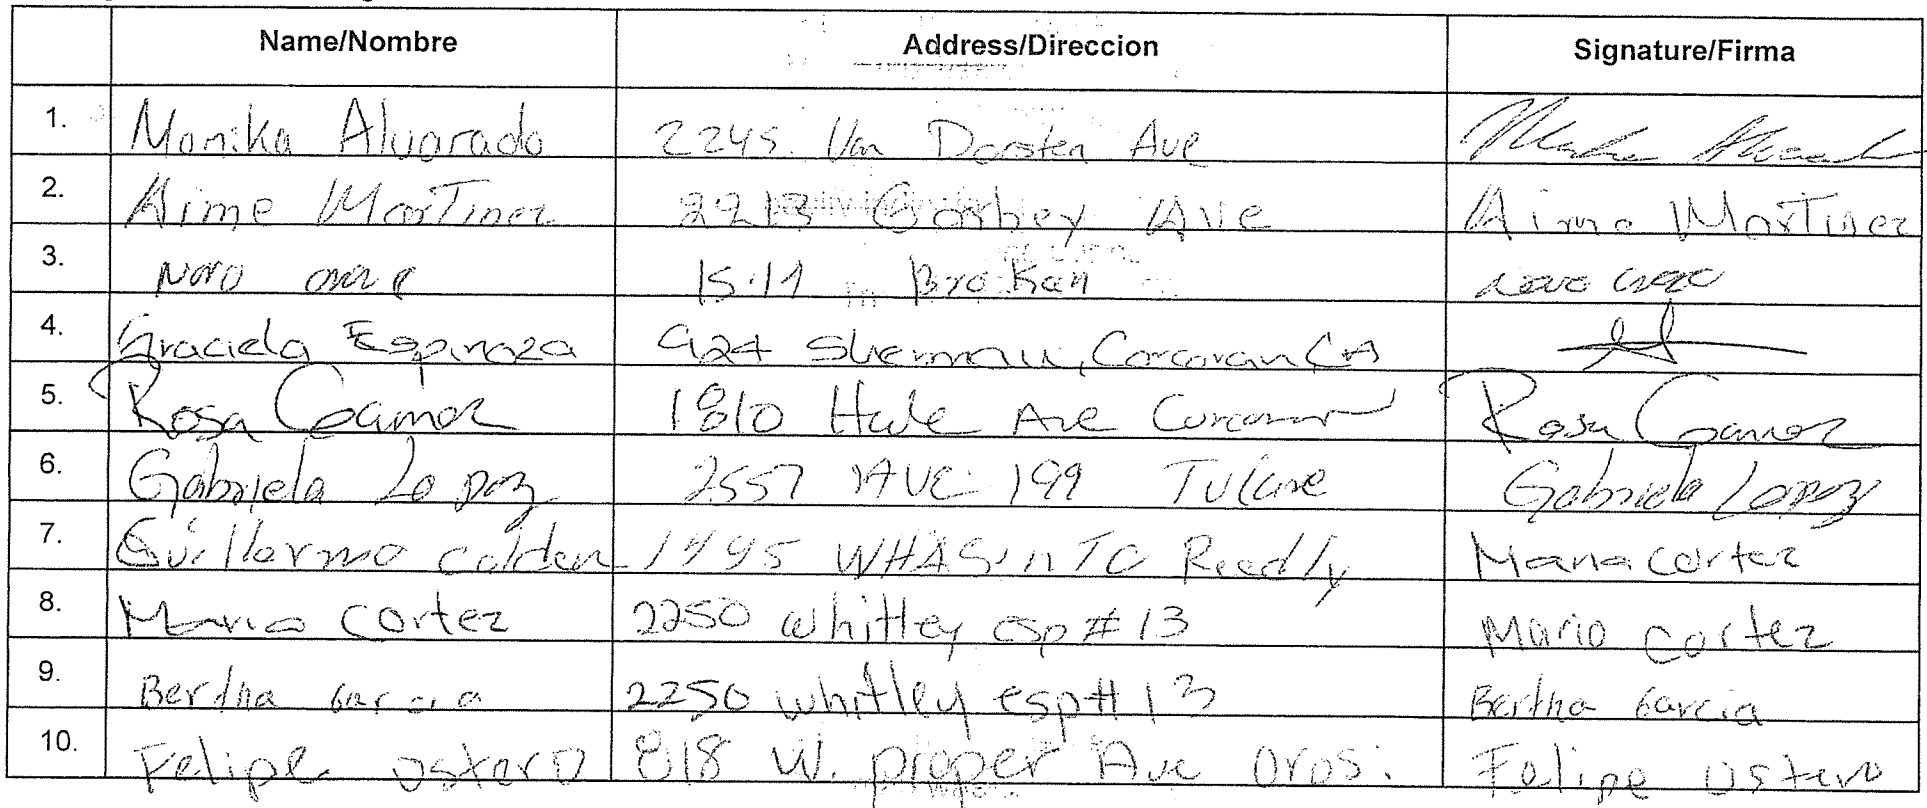 Name/Nombre Address/Direccion Signature/Firma
1. Monika Alvarado 2245. Van Dorsten Ave
2. Aime Martinez 2213 Gorbey Ave Aime Martinez
3. 1511 Broken
4. Graciela Espinoza 924 Sherman, Corcoran CA
5. Rosa Gamez 1810 Hale Ave Corcoran Rosa Gamez
6. Gabriela Lopez 2557 AVE 199 Tulare Gabriela Lopez
7. Guillermo calderon 1495 WHASinTO Reedly Maria cortez
8. Mario Cortez 2250 whitley esp #13 Mario cortez
9. Bertha Garcia 2250 whitley esp# 13 Bertha Garcia
10. Felipe 818 W. proper Ave Orosi Felipe